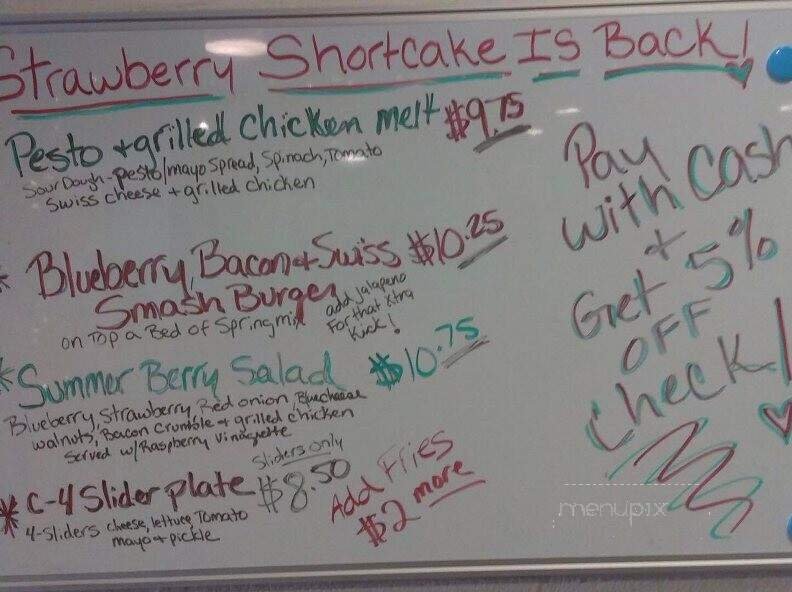 Strawberry Shortcake Is Back!
Pesto + grilled chicken melt $9.75
Sour Dough - pesto/mayo Spread, Spinach, Tomato
Swiss cheese + grilled chicken
* Blueberry, Bacon + Swiss $10.25
Smash Burger
on Top a Bed of Spring mix
add jalapeno
For that xtra
Kick!
* Summer Berry Salad $10.75
Blueberry, Strawberry, Red onion, Bluecheese
walnuts, Bacon Crumble + grilled chicken
Served w/ Raspberry Vinagette
* C-4 Slider plate $8.50
Sliders only
4-Sliders cheese, lettuce, Tomato
mayo + pickle
Add Fries
$2 more
Pay
with Cash
+
Get 5%
OFF
Check!
menupix